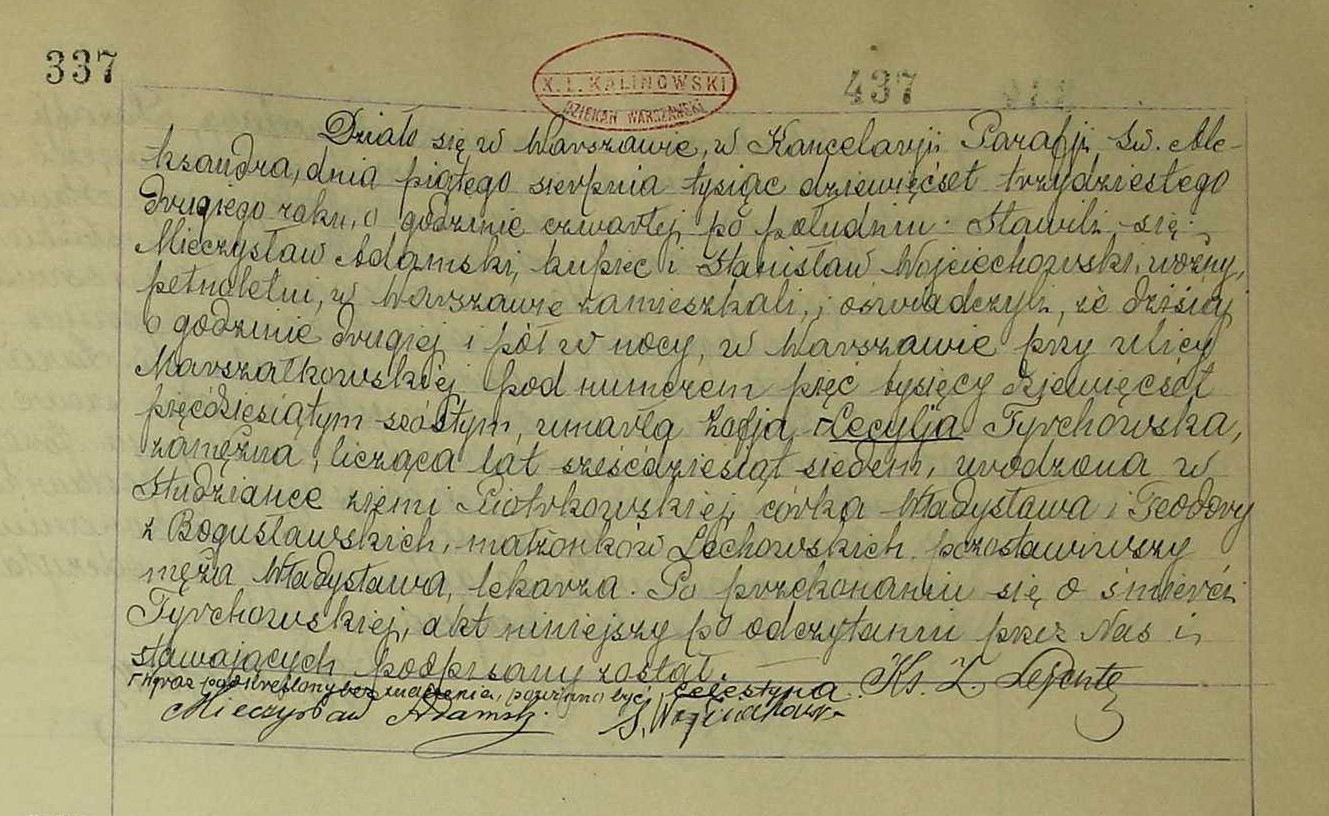 337
X. I. KALINOWSKI
DZIEKAN WARSZAWSKI
437
Działo się w Warszawie, w Kancelarji Parafji Św. Ale-
ksandra, dnia piątego sierpnia tysiąc dziewięćset trzydziestego
drugiego roku, o godzinie czwartej po południu. Stawili się:
Mieczysław Adamski, kupiec i Stanisław Wojciechowski, woźny,
pełnoletni, w Warszawie zamieszkali, i oświadczyli, że dzisiaj
o godzinie drugiej i pół w nocy, w Warszawie przy ulicy
Marszałkowskiej pod numerem pięć tysięcy dziewięćset
pięćdziesiątym szóstym, umarła Zofja Cecylja Tyrchowska,
zamężna, licząca lat sześćdziesiąt siedem, urodzona w
Studziance ziemi Piotrkowskiej, córka Władysława i Teodory
z Bogusławskich, małżonków Lechowskich, pozostawiwszy
męża Władysława, lekarza. Po przekonaniu się o śmierci
Tyrchowskiej, akt niniejszy po odczytaniu przez Nas i
stawających podpisany został.
Wyraz podkreślony bez znaczenia, powinno być, Celestyna. Ks. Z.
Mieczysław Adamski S. Wojciechowski